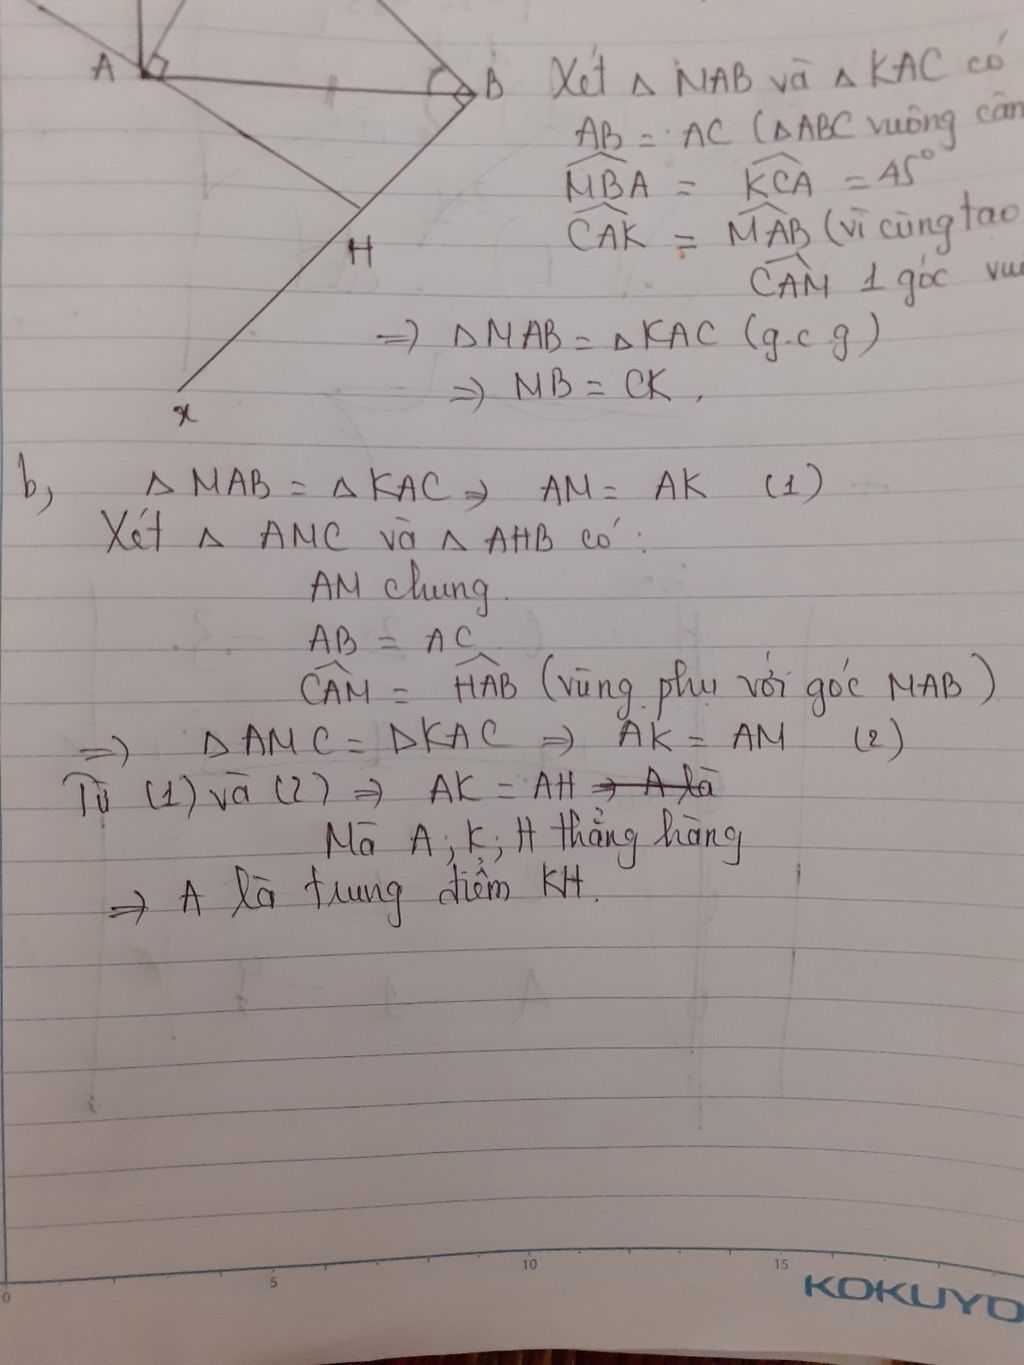 A
B
H
x
Xét Δ MAB và Δ KAC có
AB = AC (ΔABC vuông cân
MBA = KCA = 45°
CAK = MAB (vì cùng tạo
CAM 1 góc
=> Δ MAB = Δ KAC (g.c g)
=> MB = CK.
b, Δ MAB = Δ KAC => AM = AK (1)
Xét Δ AMC và Δ AHB có:
AM chung.
AB = AC
CAM = HAB (vùng phụ với góc MAB)
=> Δ AMC = Δ KAC => AK = AM (2)
Từ (1) và (2) => AK = AH => A là
Mà A; K; H thẳng hàng
=> A là trung điểm KH.
0 5 10 15
KOKUYO